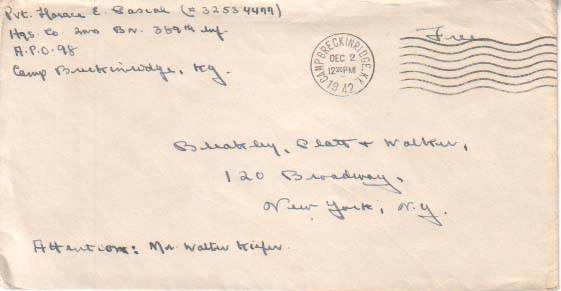 Pvt. Horace E. (# 32534477)
Hqs. Co. 2nd Bn. 359th Inf.
A.P.O. 98
Camp Breckinridge, Ky.
CAMP BRECKINRIDGE, KY.
DEC 2
12 30 PM
1942
Free
Bleakley, Platt & Walker,
120 Broadway,
New York, N.Y.
Attention: Mr. Walter Kiefer.